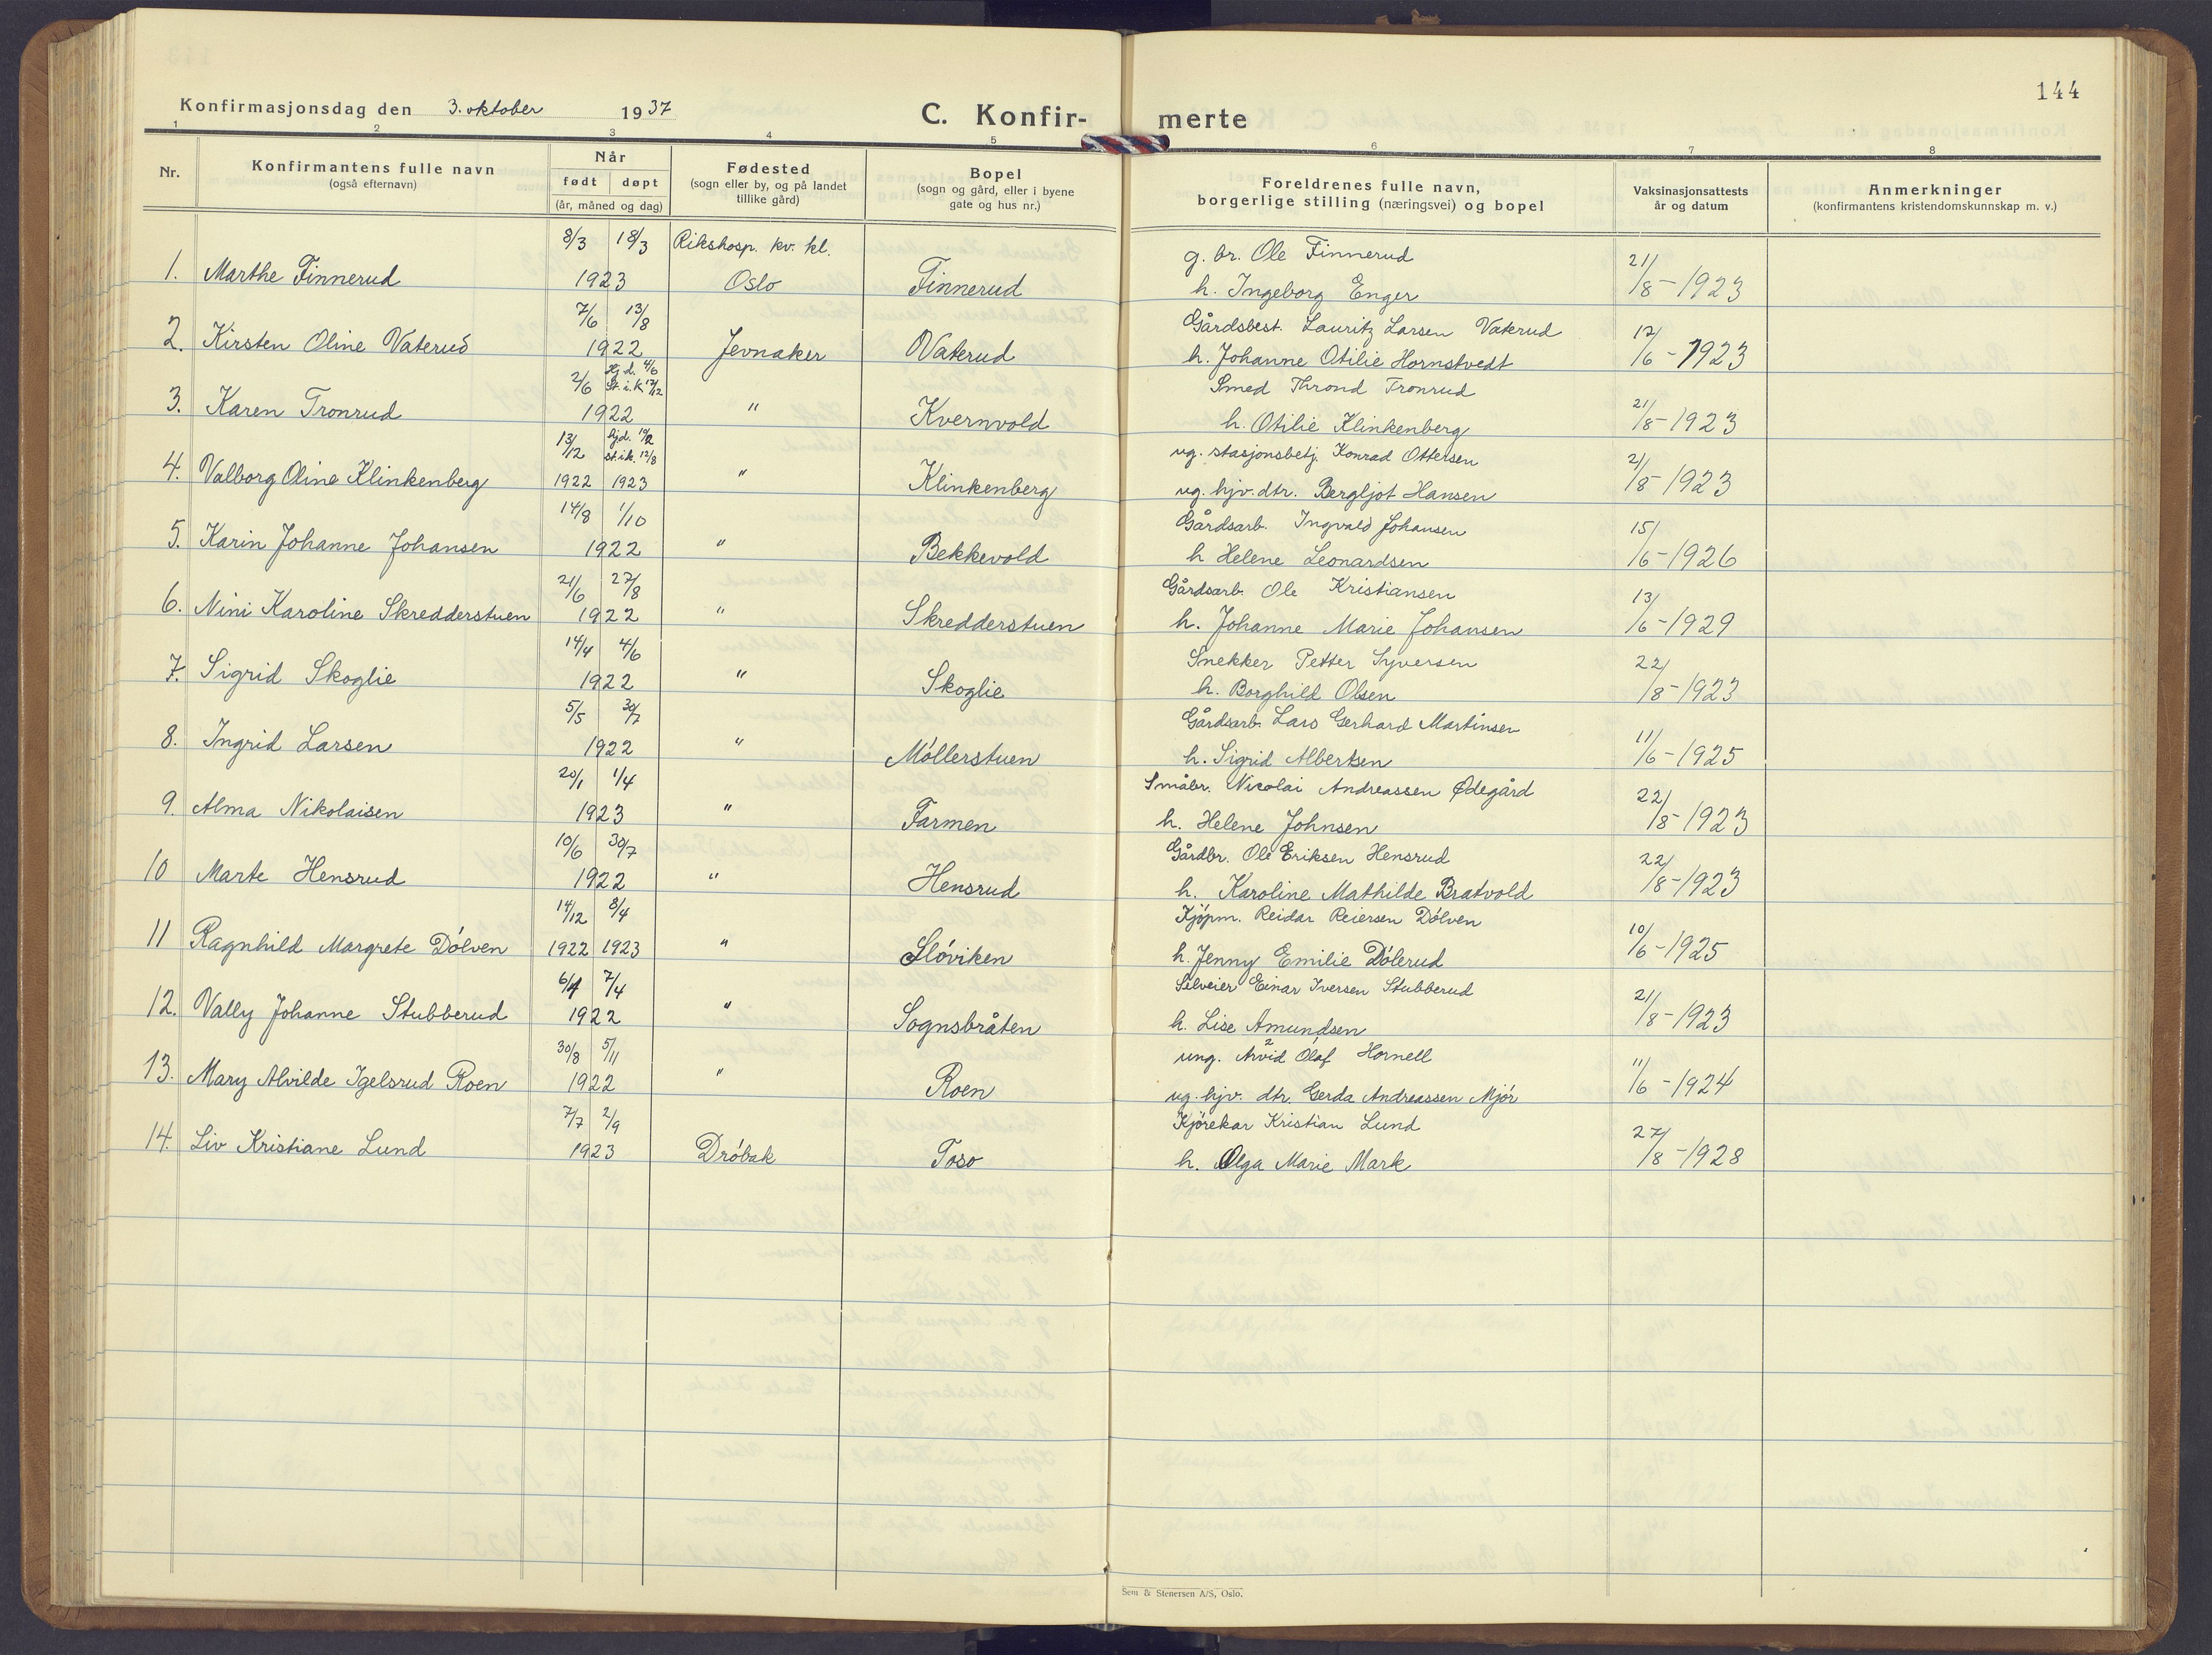 144
Konfirmasjonsdag den 3. oktober 1937
C. Konfir-merte
1 2 3 4 5 6 7 8
Nr.
Konfirmantens fulle navn
(også efternavn)
Når
født døpt
(år, måned og dag)
Fødested
(sogn eller by, og på landet
tillike gård)
Bopel
(sogn og gård, eller i byene
gate og hus nr.)
Foreldrenes fulle navn,
borgerlige stilling (næringsvei) og bopel
Vaksinasjonsattests
år og datum
Anmerkninger
(konfirmantens kristendomskunnskap m. v.)
8/3 18/3 Rikshosp. kv. kl. g. br. Ole Finnerud 21/
1. Marthe Finnerud 1923 Oslo Finnerud h. Ingeborg Enger /8-1923
7/6 13/8 Gårdsbest. Lauritz Larsen Vaterud 12/
2. Kirsten Oline Vaterud 1922 Jevnaker Vaterud h. Johanne Otilie Hornstvedt /6-1923
2/6 Hj d. 4/6 St. i. k 17/12 Smed Thrond Tronrud 21/
3. Karen Tronrud 1922 " Kvernvold h. Otilie Klinkenberg /8-1923
13/12 hjd. 10/2 st. i k. 12/8 ug. stasjonsbetj. Konrad Ottersen 21/
4. Valborg Oline Klinkenberg 1922 1923 " Klinkenberg ug. hjv. dtr. Bergljot Hansen /8-1923
14/8 1/10 Gårdsarb. Ingvald Johansen 15/
5. Karin Johanne Johansen 1922 " Bekkevold h Helene Leonardsen /6-1926
21/6 27/8 Gårdsarb. Ole Kristiansen 13/
6. Nini Karoline Skredderstuen 1922 " Skredderstuen h. Johanne Marie Johansen /6-1929
14/4 4/6 Snekker Petter Syversen 22/
7. Sigrid Skoglie 1922 " Skoglie h. Borghild Olsen /8-1923
5/5 30/7 Gårdsarb. Lars Gerhard Martinsen 11/
8. Ingrid Larsen 1922 " Möllerstuen h. Sigrid Albertsen /6-1925
20/1 1/4 Småbr. Nicolai Andreassen Ødegård 22/
9. Alma Nikolaisen 1923 " Farmen h. Helene Johnsen /8-1923
10/6 30/7 Gårdbr. Ole Eriksen Hensrud 22/
10 Marte Hensrud 1922 " Hensrud h. Karoline Mathilde Bratvold /8-1923
14/12 8/4 Kjöpm. Reidar Reiersen Dölven 10/
11 Ragnhild Margrete Dölven 1922 1923 " Slöviken h. Jenny Emilie Dölerud /6-1925
6/1 7/4 Selveier Einar Iversen Stubberud 21/
12. Vally Johanne Stubberud 1922 " Sognsbråten h. Lise Amundsen /8-1923
30/8 5/11 ung. Arvid Olaf Hornell 11/
13. Mary Alvilde Igelsrud Roen 1922 " Roen ug. hjv. dtr. Gerda Andreassen Mjör /6-1924
7/7 2/9 Kjörekar Kristian Lund 27/
14. Liv Kristiane Lund 1923 Dröbak Toso h. Olga Marie Mark /8-1928
Sem & Stenersen A/S, Oslo.